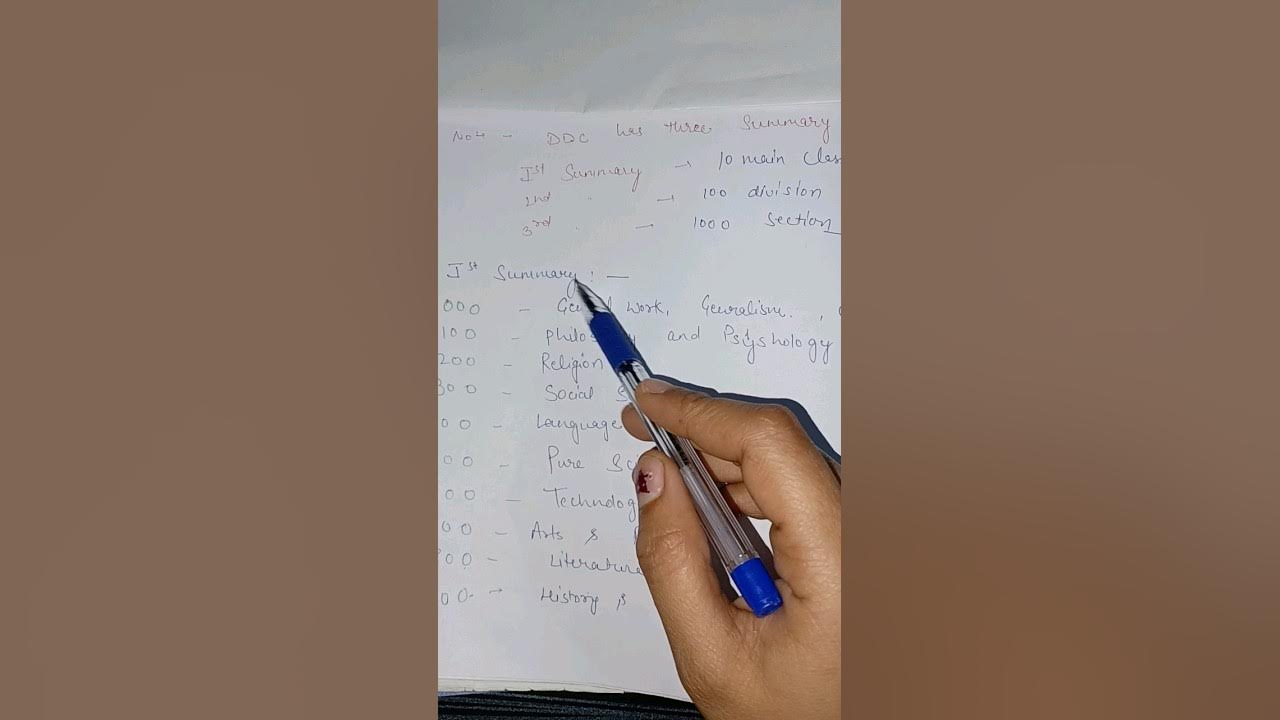 Note - DDC has three Summary
Ist Summary → 10 main Clas
2nd " → 100 division
3rd " → 1000 Section
Ist Summary : —
000 - Ge work, Genralism. ,
100 - Philos and Psiyshology
200 - Religion
300 - Social S
00 - Language
00 - Pure Sc
00 - Technolog
00 - Arts &
00 - Literature
00 - History &